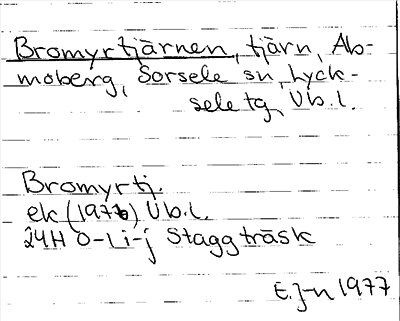 Bromyrtjärnen, tjärn, Ab-
moberg, Sorsele sn, Lyck-
sele tg, Vb.l.
Bromyrtj.
ek (1976) Vb.l.
24H 0-1 i-j Staggträsk
E. J-n 1977